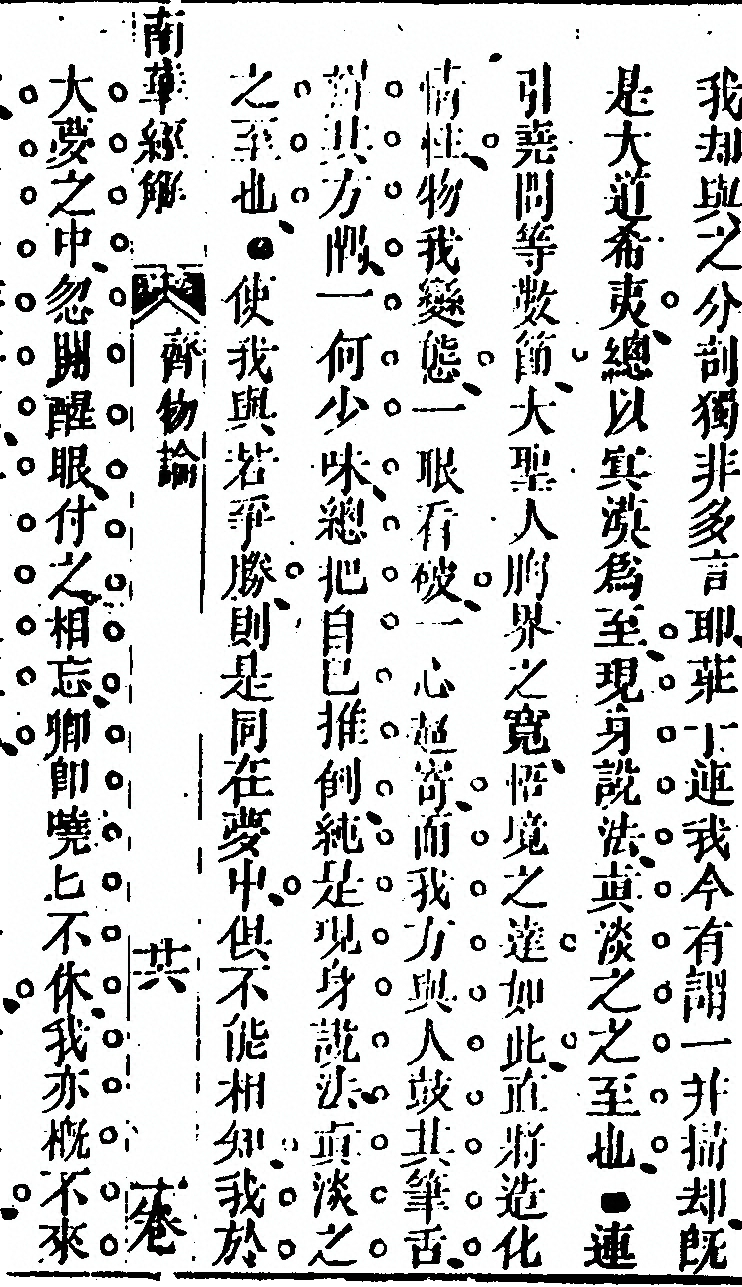 我却與之分剖獨非多言耶莊子連我今有謂一并掃却既
是大道希夷總以寞漠爲至現身說法真淡之之至也●連
引堯問等數節大聖人胸界之寬悟境之達如此直將造化
情性物我變態一眼看破一心超寄而我方與人鼓其筆舌
其方隅一何少味總把自己推倒純是現身說法真淡之
之至也●使我與若爭勝則是同在夢中俱不能相知我於
南華經解 齊物論 廿六 卷
大夢之中忽開醒眼付之相忘卿即嘵匕不休我亦概不來